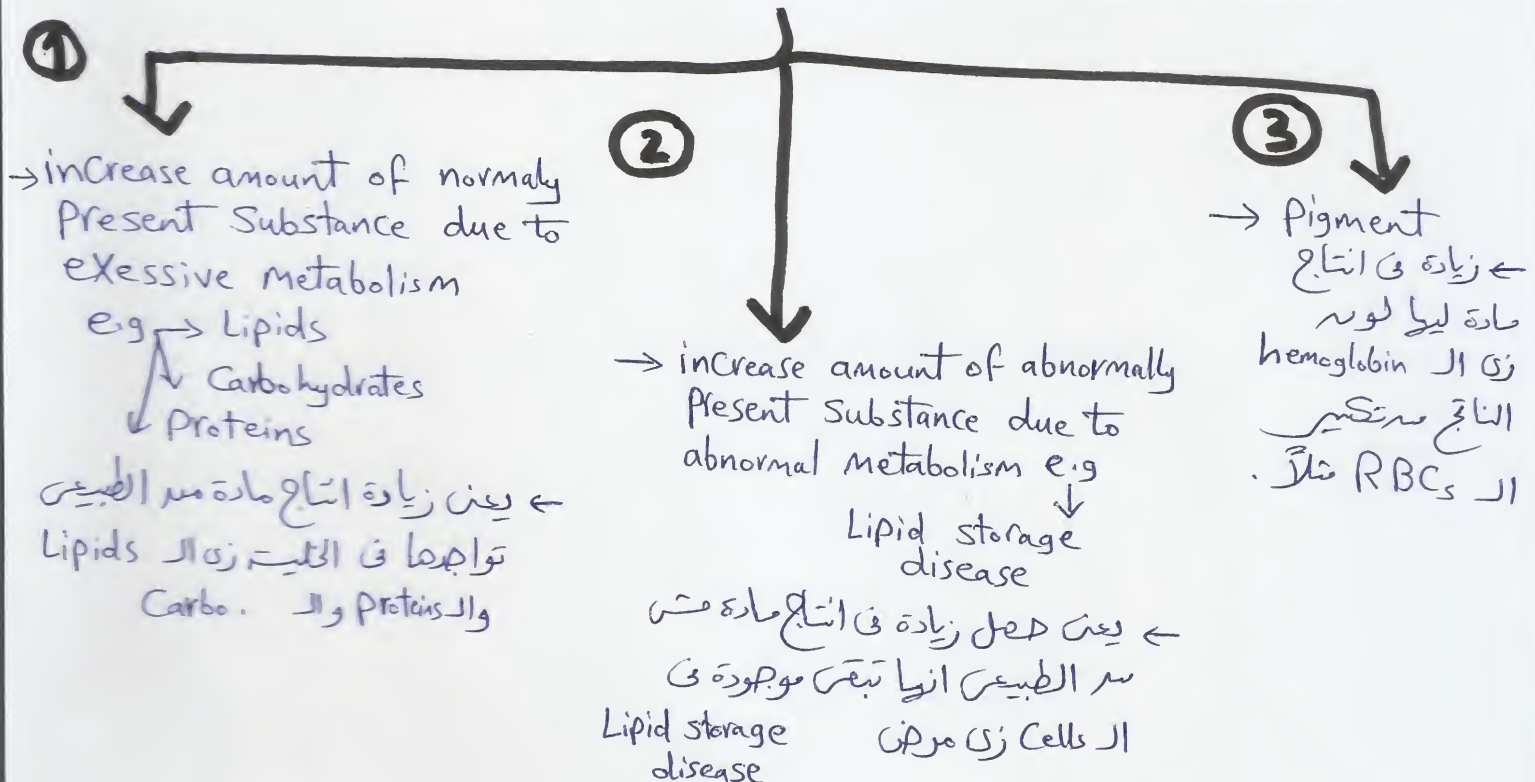 ①
→ increase amount of normaly
Present Substance due to
exessive metabolism
e.g → Lipids
Carbohydrates
Proteins
← يعنى زيادة انتاج مادة من الطبيعى
تواجدها فى الخلية زى الـ Lipids
والـ Proteins والـ Carbo.
②
→ increase amount of abnormally
Present Substance due to
abnormal metabolism e.g
Lipid storage
disease
← يعنى حصل زيادة فى انتاج مادة مش
من الطبيعى انها تبقى موجودة فى
الـ Cells زى مرض Lipid storage
disease
③
→ Pigment
← زيادة فى انتاج
مادة ليها لون
زى الـ hemoglobin
الناتج من تكسير
الـ RBCs مثلاً .